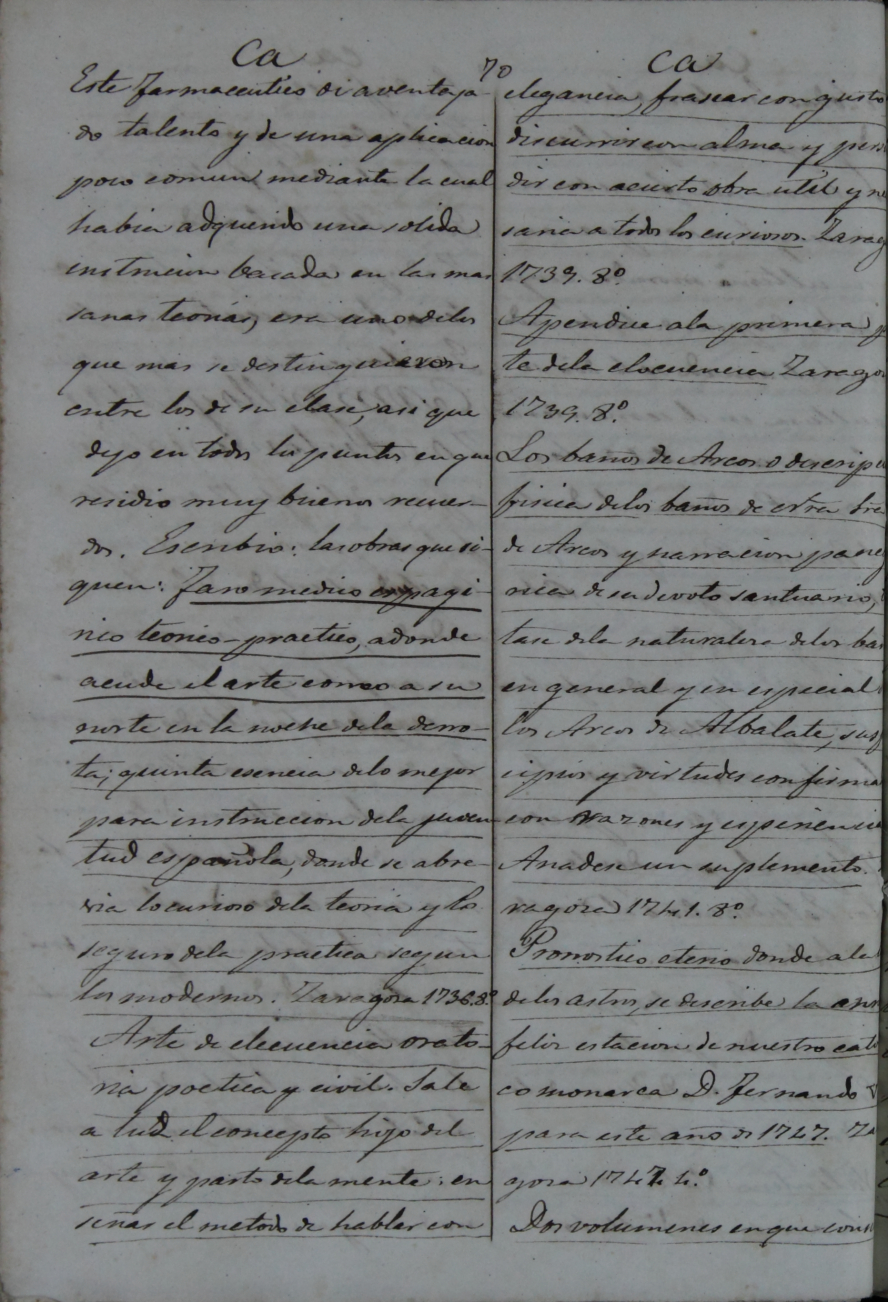 Ca
70
Ca
Este Farmaceutico di aventaja-
do talento y de una aplicacion
poco comun mediante la cual
habia adquirido una solida
instrucion bacada en las mas
sanas teorias, era uno delos
que mas se destinguieron
entre los de su clase, asi que
dejo en todos los puntos en que
residio muy buenos recuer-
dos. Escribio: las obras que si-
guen: Faro medico espagi-
rico teorico-practico, adonde
acude el arte como a su
norte en la noche dela derro-
ta; quinta esencia delo mejor
para instruccion dela juven
tud española, donde se abre-
via lo curioso dela teoria y lo
seguro dela practica segun
los modernos. Zaragoza 1736. 8º
Arte de elecuencia orato-
ria poetica y civil. Sale
a lud el concepto hijo del
arte y parto dela mente: en
señar el metodo de hablar con
elegancia, frasear con gusto
discurrir con alma y pers
dir con acierto obra util y ne
saria a todos los curiosos. Zarag
1739. 8º
Apendice ala primera p
te dela elocuencia Zaragoz
1739. 8º
Los baños de Arcos o descrip
fisica delos baños de
de Arcos y narracion paneg
rica de su devoto santuario,
tase dela naturaleza delos ba
en general y en especial
los Arcos de Albalate, sus
cipios y virtudes confirma
con razones y esperiencia
Anadese un suplemento.
ragoza 1741. 8º
Pronostico eterio donde ala
delos astros, se describe la
feliz estacion de nuestro cato
co monarca D. Fernando V
para este año de 1747. Za
goza 1747 4º
Dos volumenes en que cons